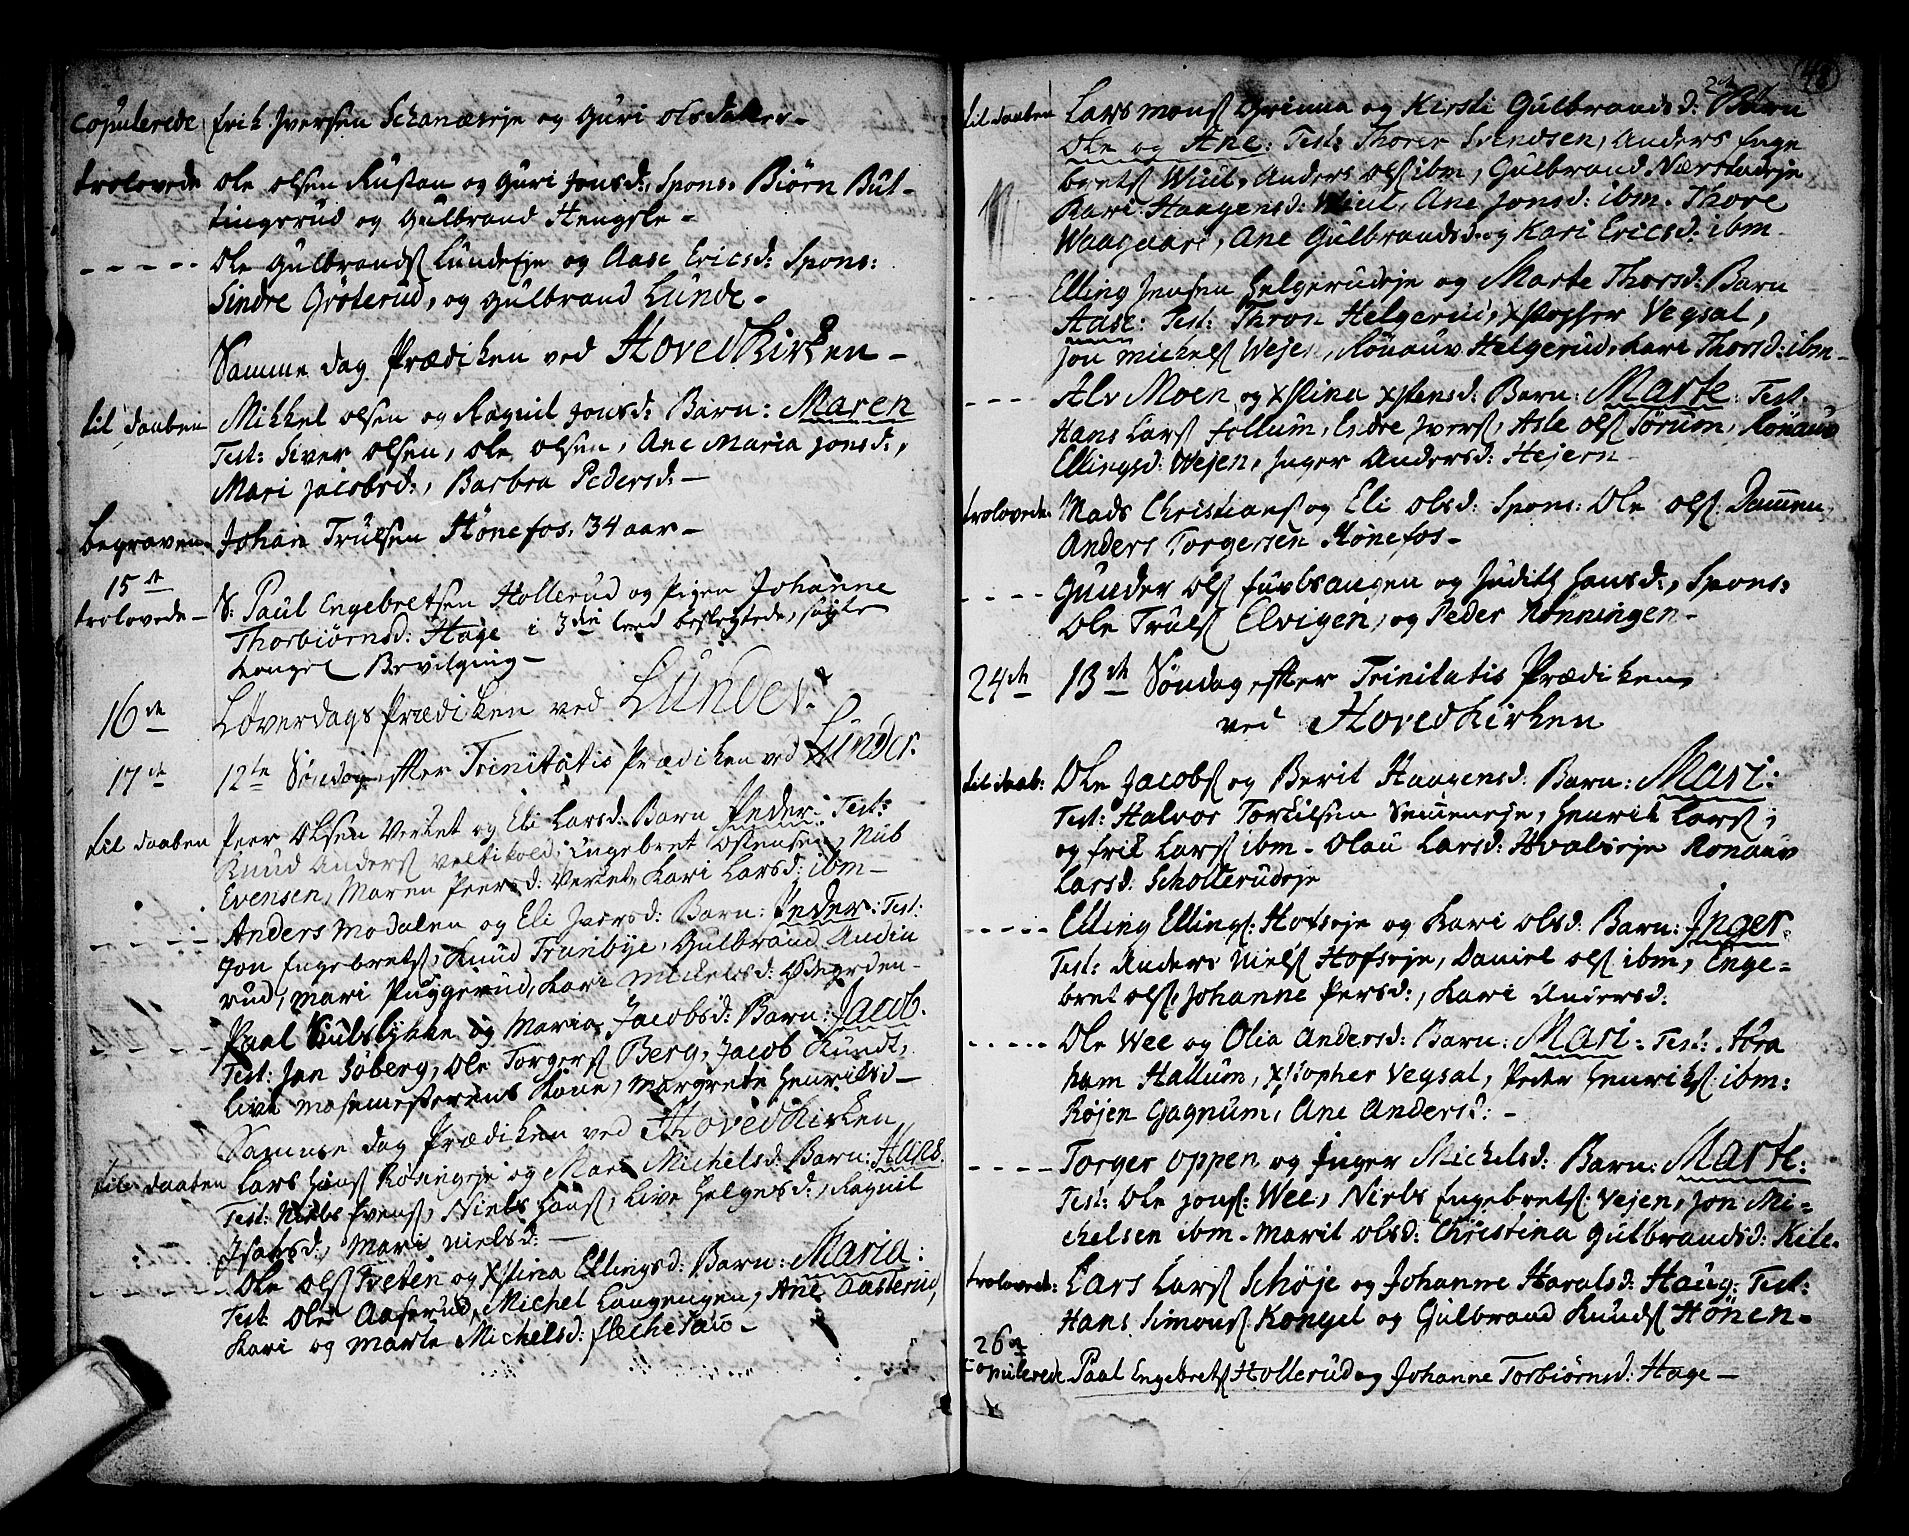 Copulerede Erik Iversen Schanaseje og Guri olsdatter –
trolovede Ole Olsen Rustan og Guri Jonsd: Spons: Biørn Bul-
tingsrud og Gulbrand Hengsle –
- - - - - Ole Gulbrandsſ Lundeeje og Aase Ericsd: Spons:
Sindre Grøterud, og Gulbrand Lunde –
Samme dag Prædiken ved HovedKirken –
til daaben Mikkel Olsen og Ragnil Jonsd: Barn: Maren
Test: Siver Olsen, Ole Olsen, Ane Maria Jonsd:,
Mari Jacobsd:, Barbra Pedersd: –
begraven Johan Trulsen Hønefos. 34 aar –
15de
trolovede – S: Paul Engebretsen Hollerud og Pigen Johanne
Thorbiørnsd: Hage i 3die leed beslegtede, søgte
Kongel Bevilging –
16de Løverdags Prædiken ved Lunder.
17de 12te Søndag efter Trinitatis Prædiken ved Lunder.
til daaben Peer Olsen Verket og Eli Larsd: Barn Peder: Test:
Knud Andersſ Veltikold, Engebret Ostensen, Nub
Evensen, Maren Peersd: Verket, Kari Larsd: ibm –
- - - - - Anders Modalen og Eli Iversd: Barn: Peder: Test:
Jon Engebretsſ, Knud Tranbye, Gulbrand Audin
rud, Mari Puggerud, Kari Mickelsd: Ødegrden –
- - - - - Paal Kulslykke og Maria Jacobsd: Barn: Jacob.
Test: Jan Søberg, Ole Torgersſ Berg, Jacob Rundt,
Live Masemesterens Kone, Margrete Henriksd –
Samme dag Prædiken ved HovedKirken
til daaben Lars Hansſ Røsingeje og Mari Michelsd: Barn: Hans
Test: Niels Evensſ, Niels Hansſ, Live Helgesd:, Ragnil
Isaksd:, Mari Nielsd: –
- - - - - Ole Olsſ Tveten og Xstina Ellingsd: Barn: Maria:
Test: Ole Aaserud, Michel Langengen, Ane Aaslerud,
Kari og Marte Michelsd: flechesaio –
(48)
23
til daaben Lars Monsſ Grinna og Kersti Gulbrandsd: Barn
Ole og Ane: Test: Thorer Svendsen, Anders Enge
bretsſ Wiul, Anders Olsſ ibm, Gulbrand Nærstadeje
Kari Haagensd: Wiul, Ane Jonsd: ibm. Thore
Waagaard, Ane Gulbrandsd. og Kari Ericsd: ibm –
- - - - Elling Jensen Helgerudeje og Marte Thorsd: Barn
Aase: Test: Thron Helgerud, Xstopher Vegsal,
Jon Michelsſ Wejen, Rønauv Helgerud, Kari Thorsd: ibm –
- - - - Alv Moen og Xstina Xstensd: Barn: Marte: Test:
Hans Larsſ Follum, Endre Iversſ, Asle Olsſ Tørum, Rønauv
Ellingsd: Wejen, Inger Andersd: Hejern –
trolovede Mads Christiansſ og Eli Olsd: Spons: Ole Olsſ Dammen,
Anders Torgersen Hønefos –
- - - - Gunder Olsſ og Judith Jansd:, Spons:
Ole Trulsſ Elvigen, og Peder Rønningen –
24de 13de Søndag efter Trinitatis Prædiken
ved HovedKirken
til daab: Ole Jacobsſ og Berit Haagensd: Barn: Mari:
Test: Halvor Torkilsen Semmeneje, Henrik Larsſ,
og Erik Larsſ ibm – Olau Larsd: Hvalseje Ronauv
Larsd: Schollerudeje
- - - - - Elling Ellingsſ: Hofseje og Kari Olsd: Barn: Inger.
Test: Anders Nielsſ Hofseje, Daniel Olsſ ibm, Enge-
bret Olsſ, Johanne Persd:, Kari Andersd:
- - - - - Ole Wee og Olia Andersd: Barn: Mari: Test: Abra
ham Hallum, Xstopher Vegsal, Peter Henriksſ: ibm:
Røjen Gagnum, Ane Andersd: –
- - - - Torger Oppen og Inger Michelsd: Barn: Marte:
Test: Ole Jonsſ: Wee, Niels Engebretsſ: Vejen, Jon Mi-
chelsen ibm – Marit Olsd: Christina Gulbrandsd: Kile.
trolovede: Lars Larsſ Schøje og Johanne Haralsd: Haug: Test:
Hans Simonsſ Kongel og Gulbrand Knudsſ Hønen –
26de
Copulerede Paal Engebretsſ Hollerud og Johanne Torbiørnsd: Hage –